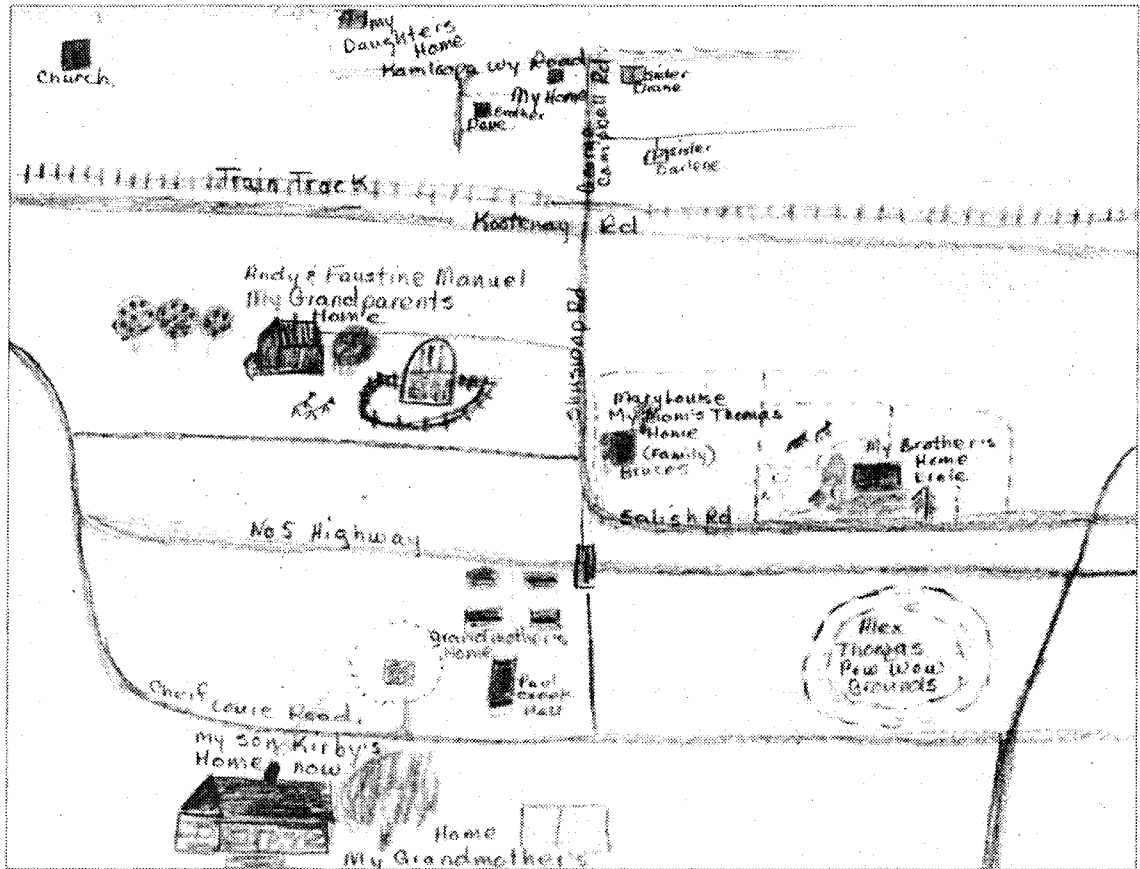 my
Daughters
Home
Church.
Kamloops Wy Road
My Home
Brother
Dave
Sister
Diane
George
Campbell Rd.
sister
Darlene
Train Track
Kootenay Rd
Andy & Faustine Manuel
My Grandparents
Home
Shuswap Rd
Marylouise
My Mom's Thomas
Home
(Family)
Bruces
My Brother's
Home
Ernie
Salish Rd
No 5 Highway
Grandmother's
Home
Paul
Creek
Hall
Alex
Thomas
Pow Wow
Grounds
Cheif
Louie Road,
My Son Kirby's
Home now
Home
My Grandmother's